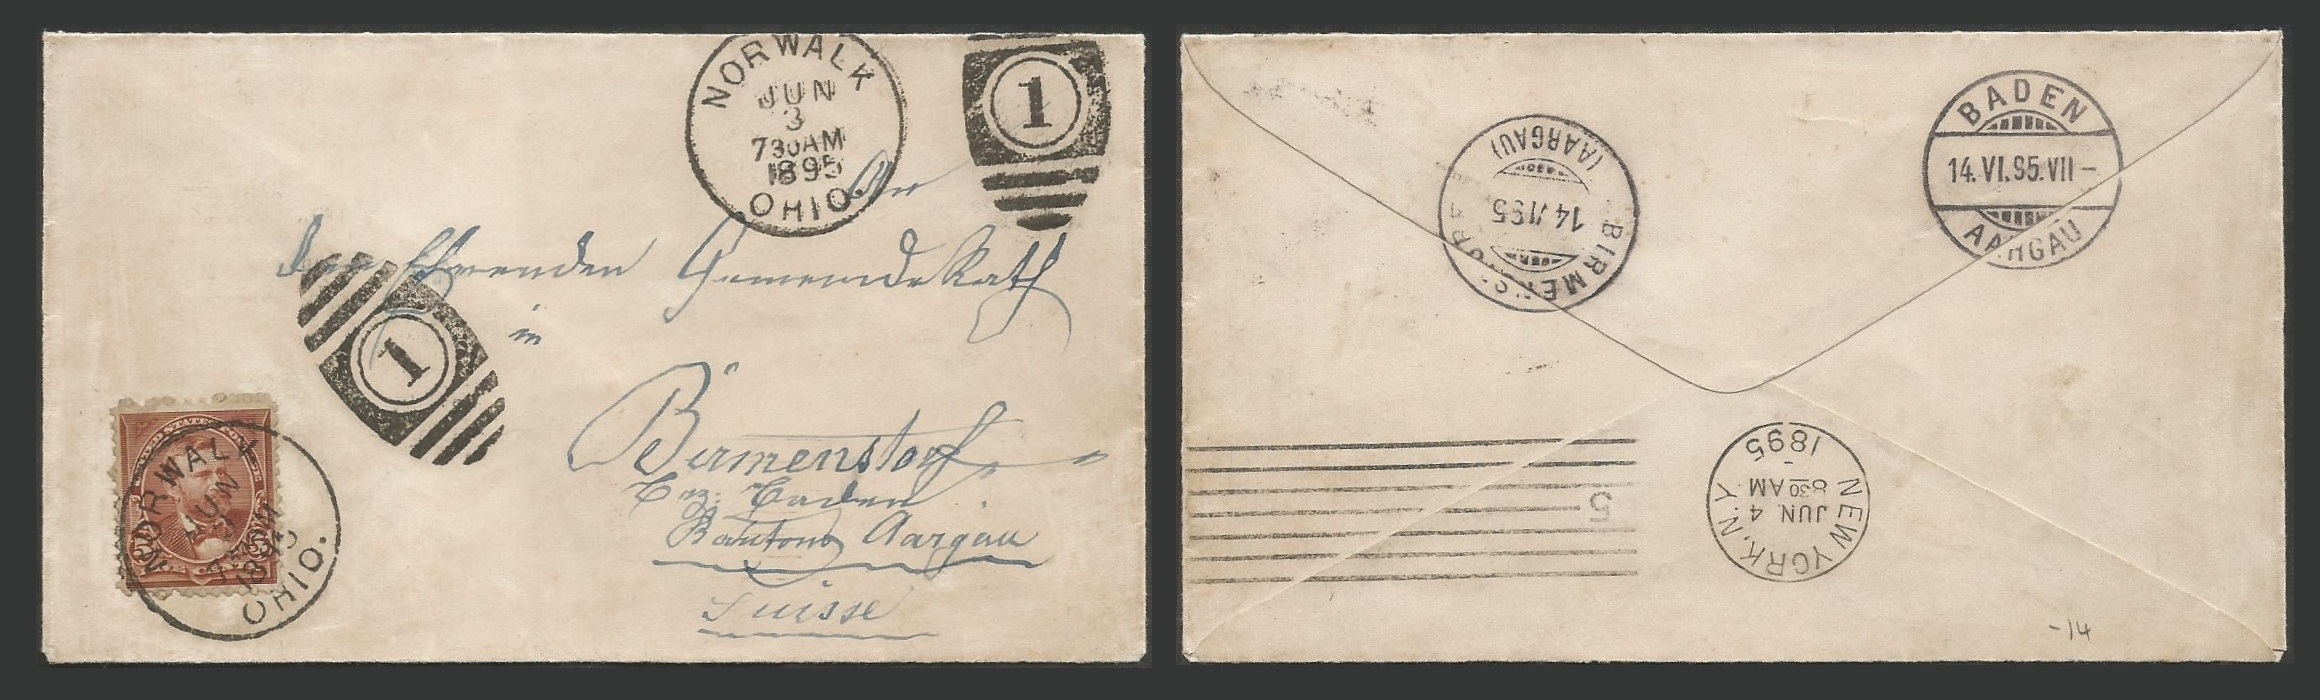 NORWALK
JUN
3
730AM
1895
OHIO.
1
An
den Ehrenden Gemeinde Rath
in
1
Birmenstorf
Bez. Baden
Kantons Aargau
Suisse
UNITED STATES
NORWALK
JUN
3
1895
OHIO.
BADEN
14.VI.95.VII-
AARGAU
BIRMENSTORF
14 VI 95
(AARGAU)
NEW YORK, N.Y.
JUN. 4
830AM
1895
5
-14